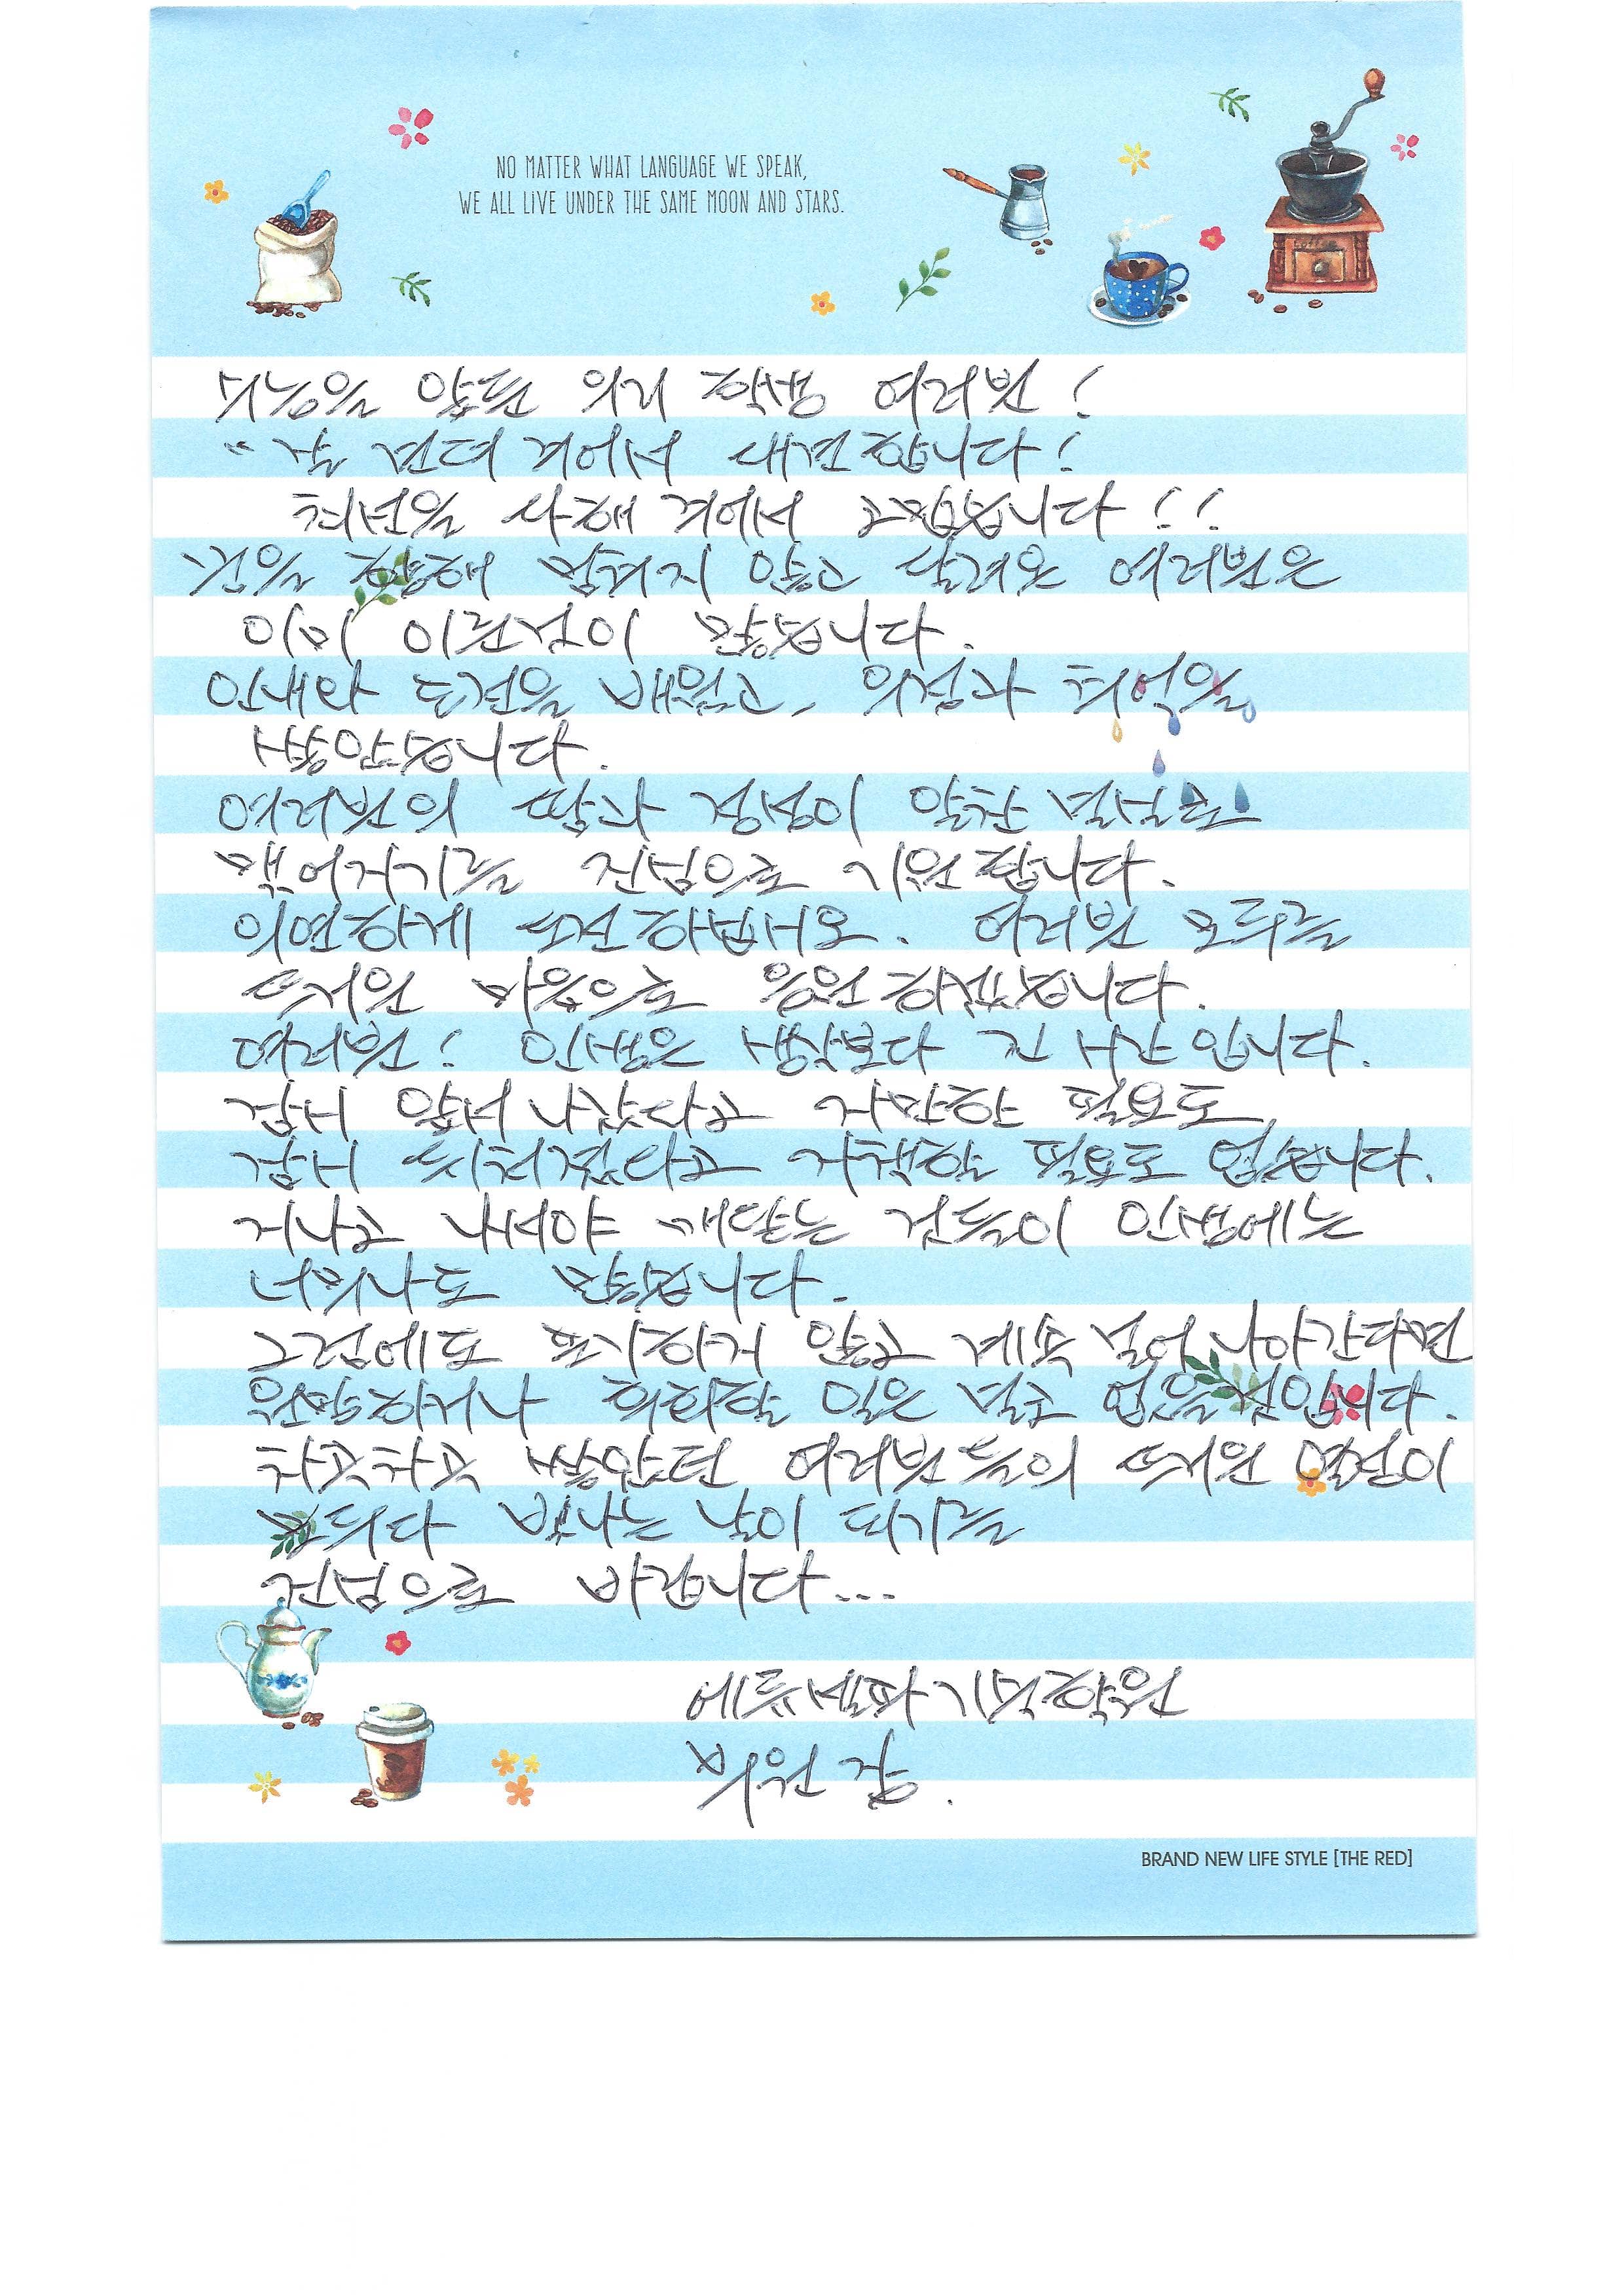 NO MATTER WHAT LANGUAGE WE SPEAK,
WE ALL LIVE UNDER THE SAME MOON AND STARS.
수능을 앞둔 우리 학생 여러분!
"잘 견뎌 주어서 대견합니다!
최선을 다해 주어서 고맙습니다!!
꿈을 향해 멈추지 않고 달려온 여러분은
이미 이룬것이 많습니다.
인내와 도전을 배웠고, 우정과 추억을
쌓았습니다.
여러분의 땀과 정성이 알찬 결실로
맺어지기를 진심으로 기원합니다.
의연하게 도전하십시오. 여러분 모두를
뜨거운 마음으로 응원하겠습니다.
여러분! 인생은 생각보다 긴 시간입니다.
잠시 앞서 나갔다고 자만할 필요도,
잠시 뒤쳐졌다고 자책할 필요도 없습니다.
지나고 나서야 깨닫는 것들이 인생에는
너무나도 많습니다.
그럼에도 포기하지 않고 계속 걸어 나아간다면
원망하거나 후회할 일은 결코 없을 것입니다.
차곡차곡 쌓았던 여러분들의 뜨거운 열정이
모두다 빛나는 날이 되기를
진심으로 바랍니다...
에듀셀파기숙학원
부원장.
BRAND NEW LIFE STYLE [THE RED]